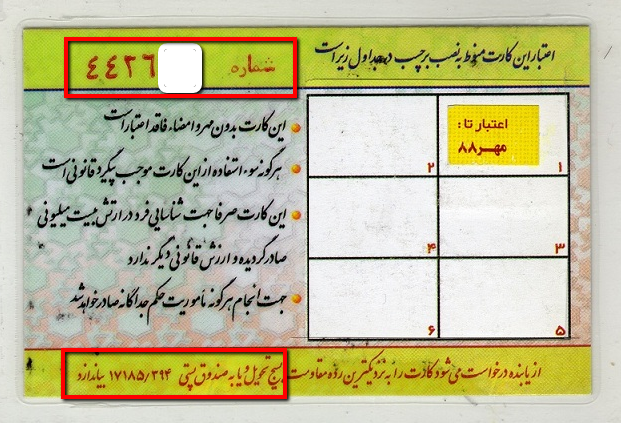 اعتبار این کارت منوط به نصب برچسب در جداول زیر است
شماره ٤٤٢٦
اعتبار تا:
مهر ۸۸
۱
۲
۳
۴
۵
۶
این کارت بدون مهر و امضاء فاقد اعتبار است
هرگونه سوء استفاده از این کارت موجب پیگرد قانونی است
این کارت صرفا جهت شناسایی فرد در ارتش بیست میلیونی
صادر گردیده و ارزش قانونی دیگر ندارد
جهت انجام هرگونه مأموریت حکم جداگانه صادر خواهد شد
از یابنده درخواست می شود کارت را به نزدیکترین رده مقاومت بسیج تحویل و یا به صندوق پستی ۱۷۱۸۵/۳۹۴ بیاندازد